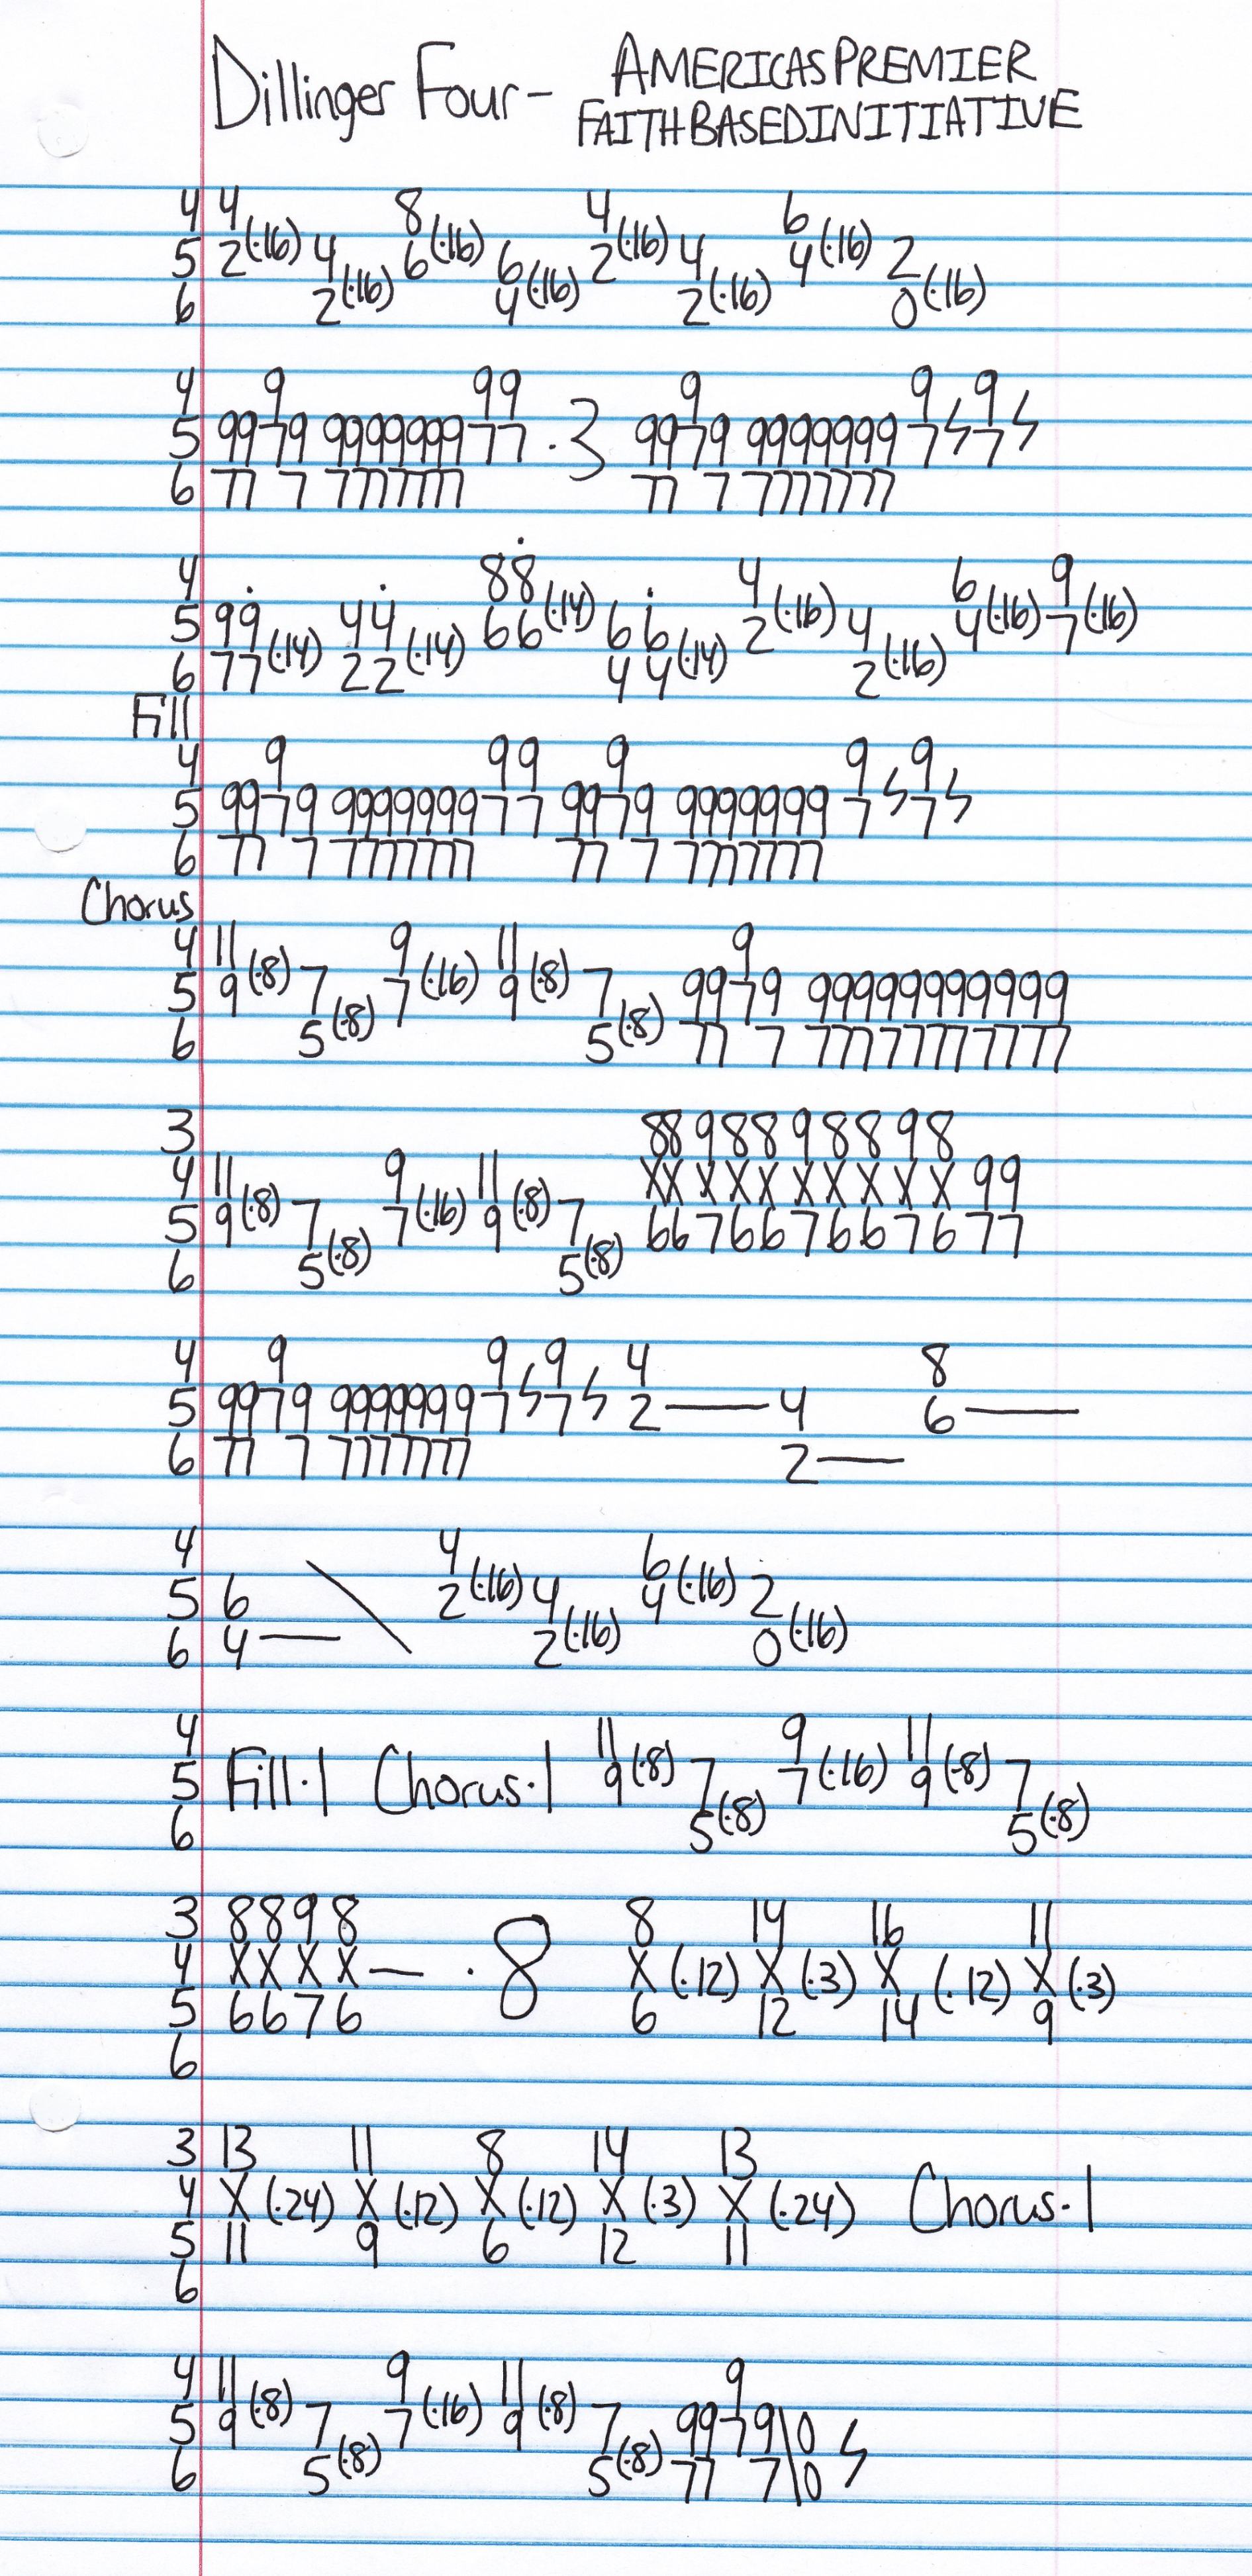 Dillinger Four - AMERICASPREMIER
FAITHBASEDINITIATIVE
4 4 8 4 6
5 2(·16) 4 6(·16) 6 2(·16) 4 4(·16) 2
6 2(·16) 4(·16) 2(·16) 0(·16)
4 9 99 9 9 9
5 9979 999999977 ·3 9979 9999999 7ϟ7ϟ
6 77 7 7777777 77 7 7777777
4 88 4 6 9
5 99 44 66(·14) 66 2(·16) 4 4(·16) 7(·16)
6 77(·14) 22(·14) 44(·14) 2(·16)
Fill
4 9 99 9 9 9
5 9979 999999977 9979 9999999 7ϟ7ϟ
6 77 7 7777777 77 7 7777777
Chorus
4 11 9 11 9
5 9(·8) 7 7(·16) 9(·8) 7 9979 99999999999
6 5(·8) 5(·8) 77 7 77777777777
3 8898898898
4 11 9 11 XXXXXXXXXX99
5 9(·8) 7 7(·16) 9(·8) 7 667667667677
6 5(·8) 5(·8)
4 9 9 9 4 8
5 9979 9999999 7ϟ7ϟ 2— 4 6—
6 77 7 7777777 2—
4 4 6
5 6 \ 2(·16) 4 4(·16) 2
6 4— 2(·16) 0(·16)
4 11 9 11
5 Fill·1 Chorus·1 9(·8) 7 7(·16) 9(·8) 7
6 5(·8) 5(·8)
3 8898 8 14 16 11
4 XXXX— ·8 X(·12) X(·3) X(·12) X(·3)
5 6676 6 12 14 9
6
3 13 11 8 14 13
4 X(·24) X(·12) X(·12) X(·3) X(·24) Chorus·1
5 11 9 6 12 11
6
4 11 9 11 9
5 9(·8) 7 7(·16) 9(·8) 7 9979\0 ϟ
6 5(·8) 5(·8) 77 7\0